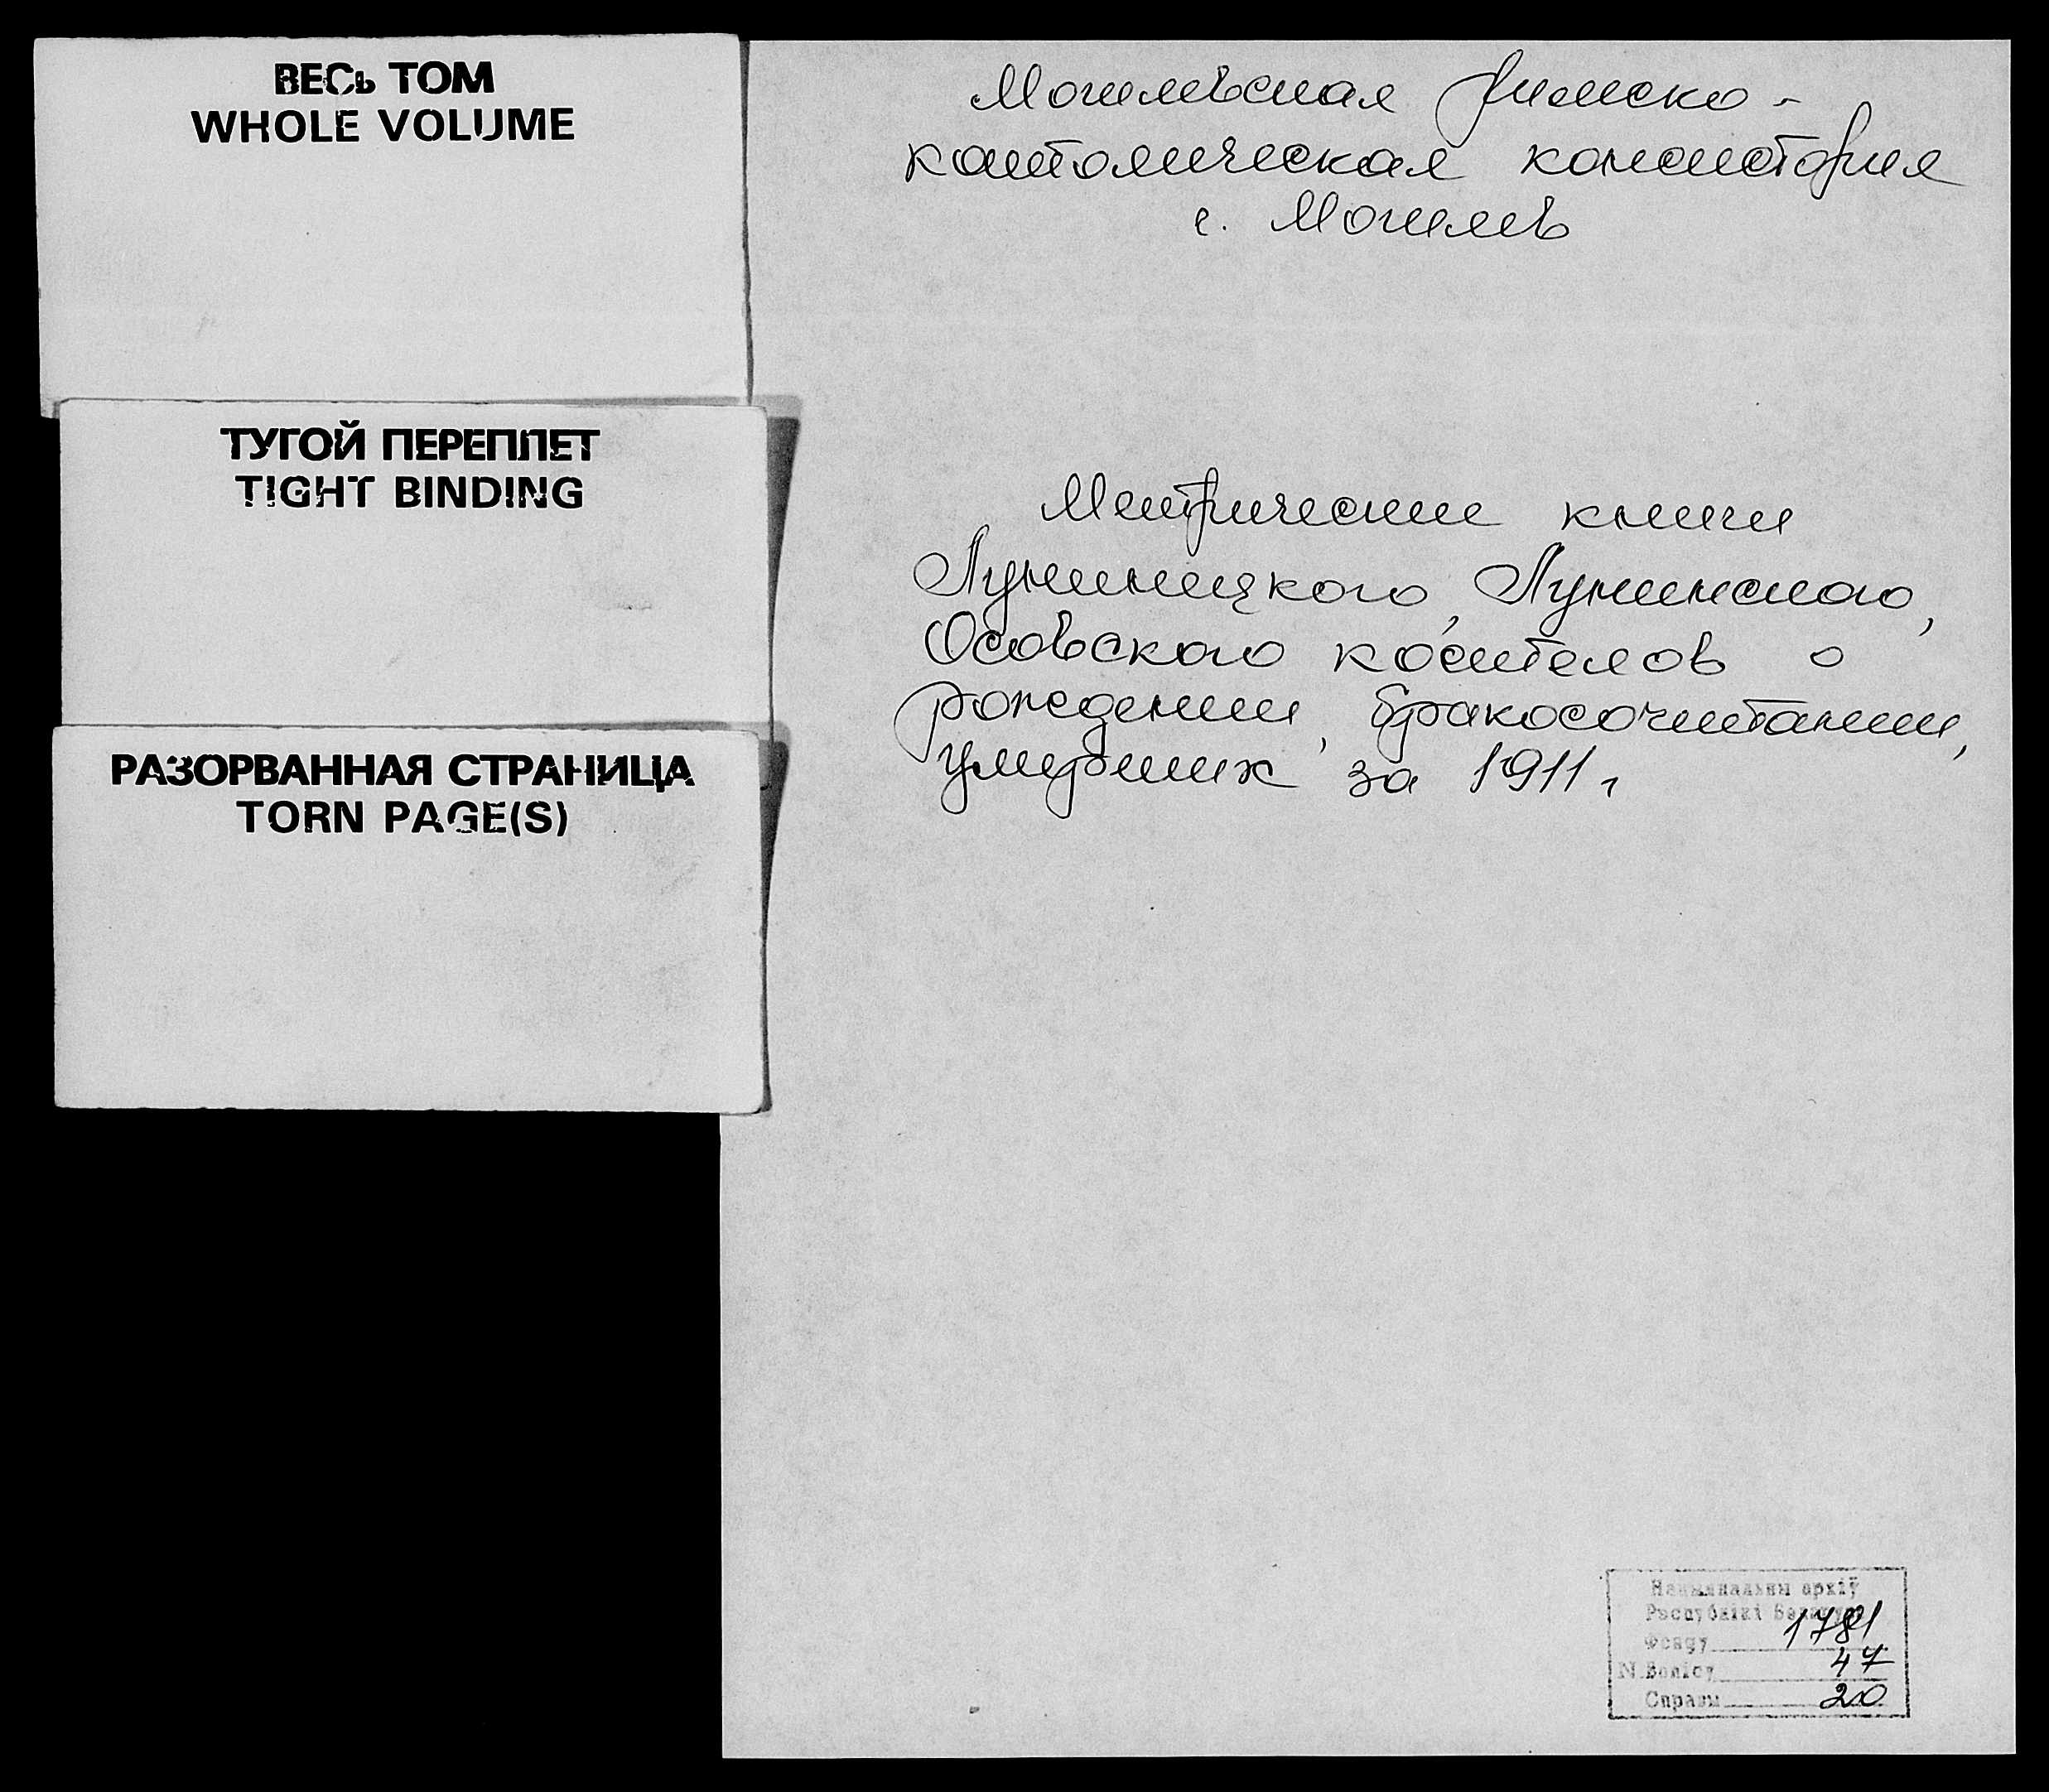 ВЕСЬ ТОМ
WHOLE VOLUME
ТУГОЙ ПЕРЕПЛЕТ
TIGHT BINDING
РАЗОРВАННАЯ СТРАНИЦА
TORN PAGE(S)
Могилевская римско-
католическая консистория
г. Могилев
Метрические книги
Лунинецкого, Лунинского,
Осовского костелов о
рождении, бракосочитании,
умерших за 1911 г
Нацыянальны архіў
Рэспублікі Беларусь
Фонду 1781
N Вопісу 47
Справы 20